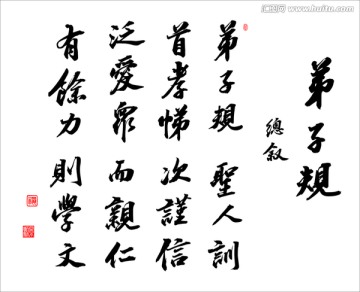 弟子规
總敘
弟子規 聖人訓
首孝悌 次謹信
泛愛眾 而親仁
有餘力 則學文
www.huitu.com